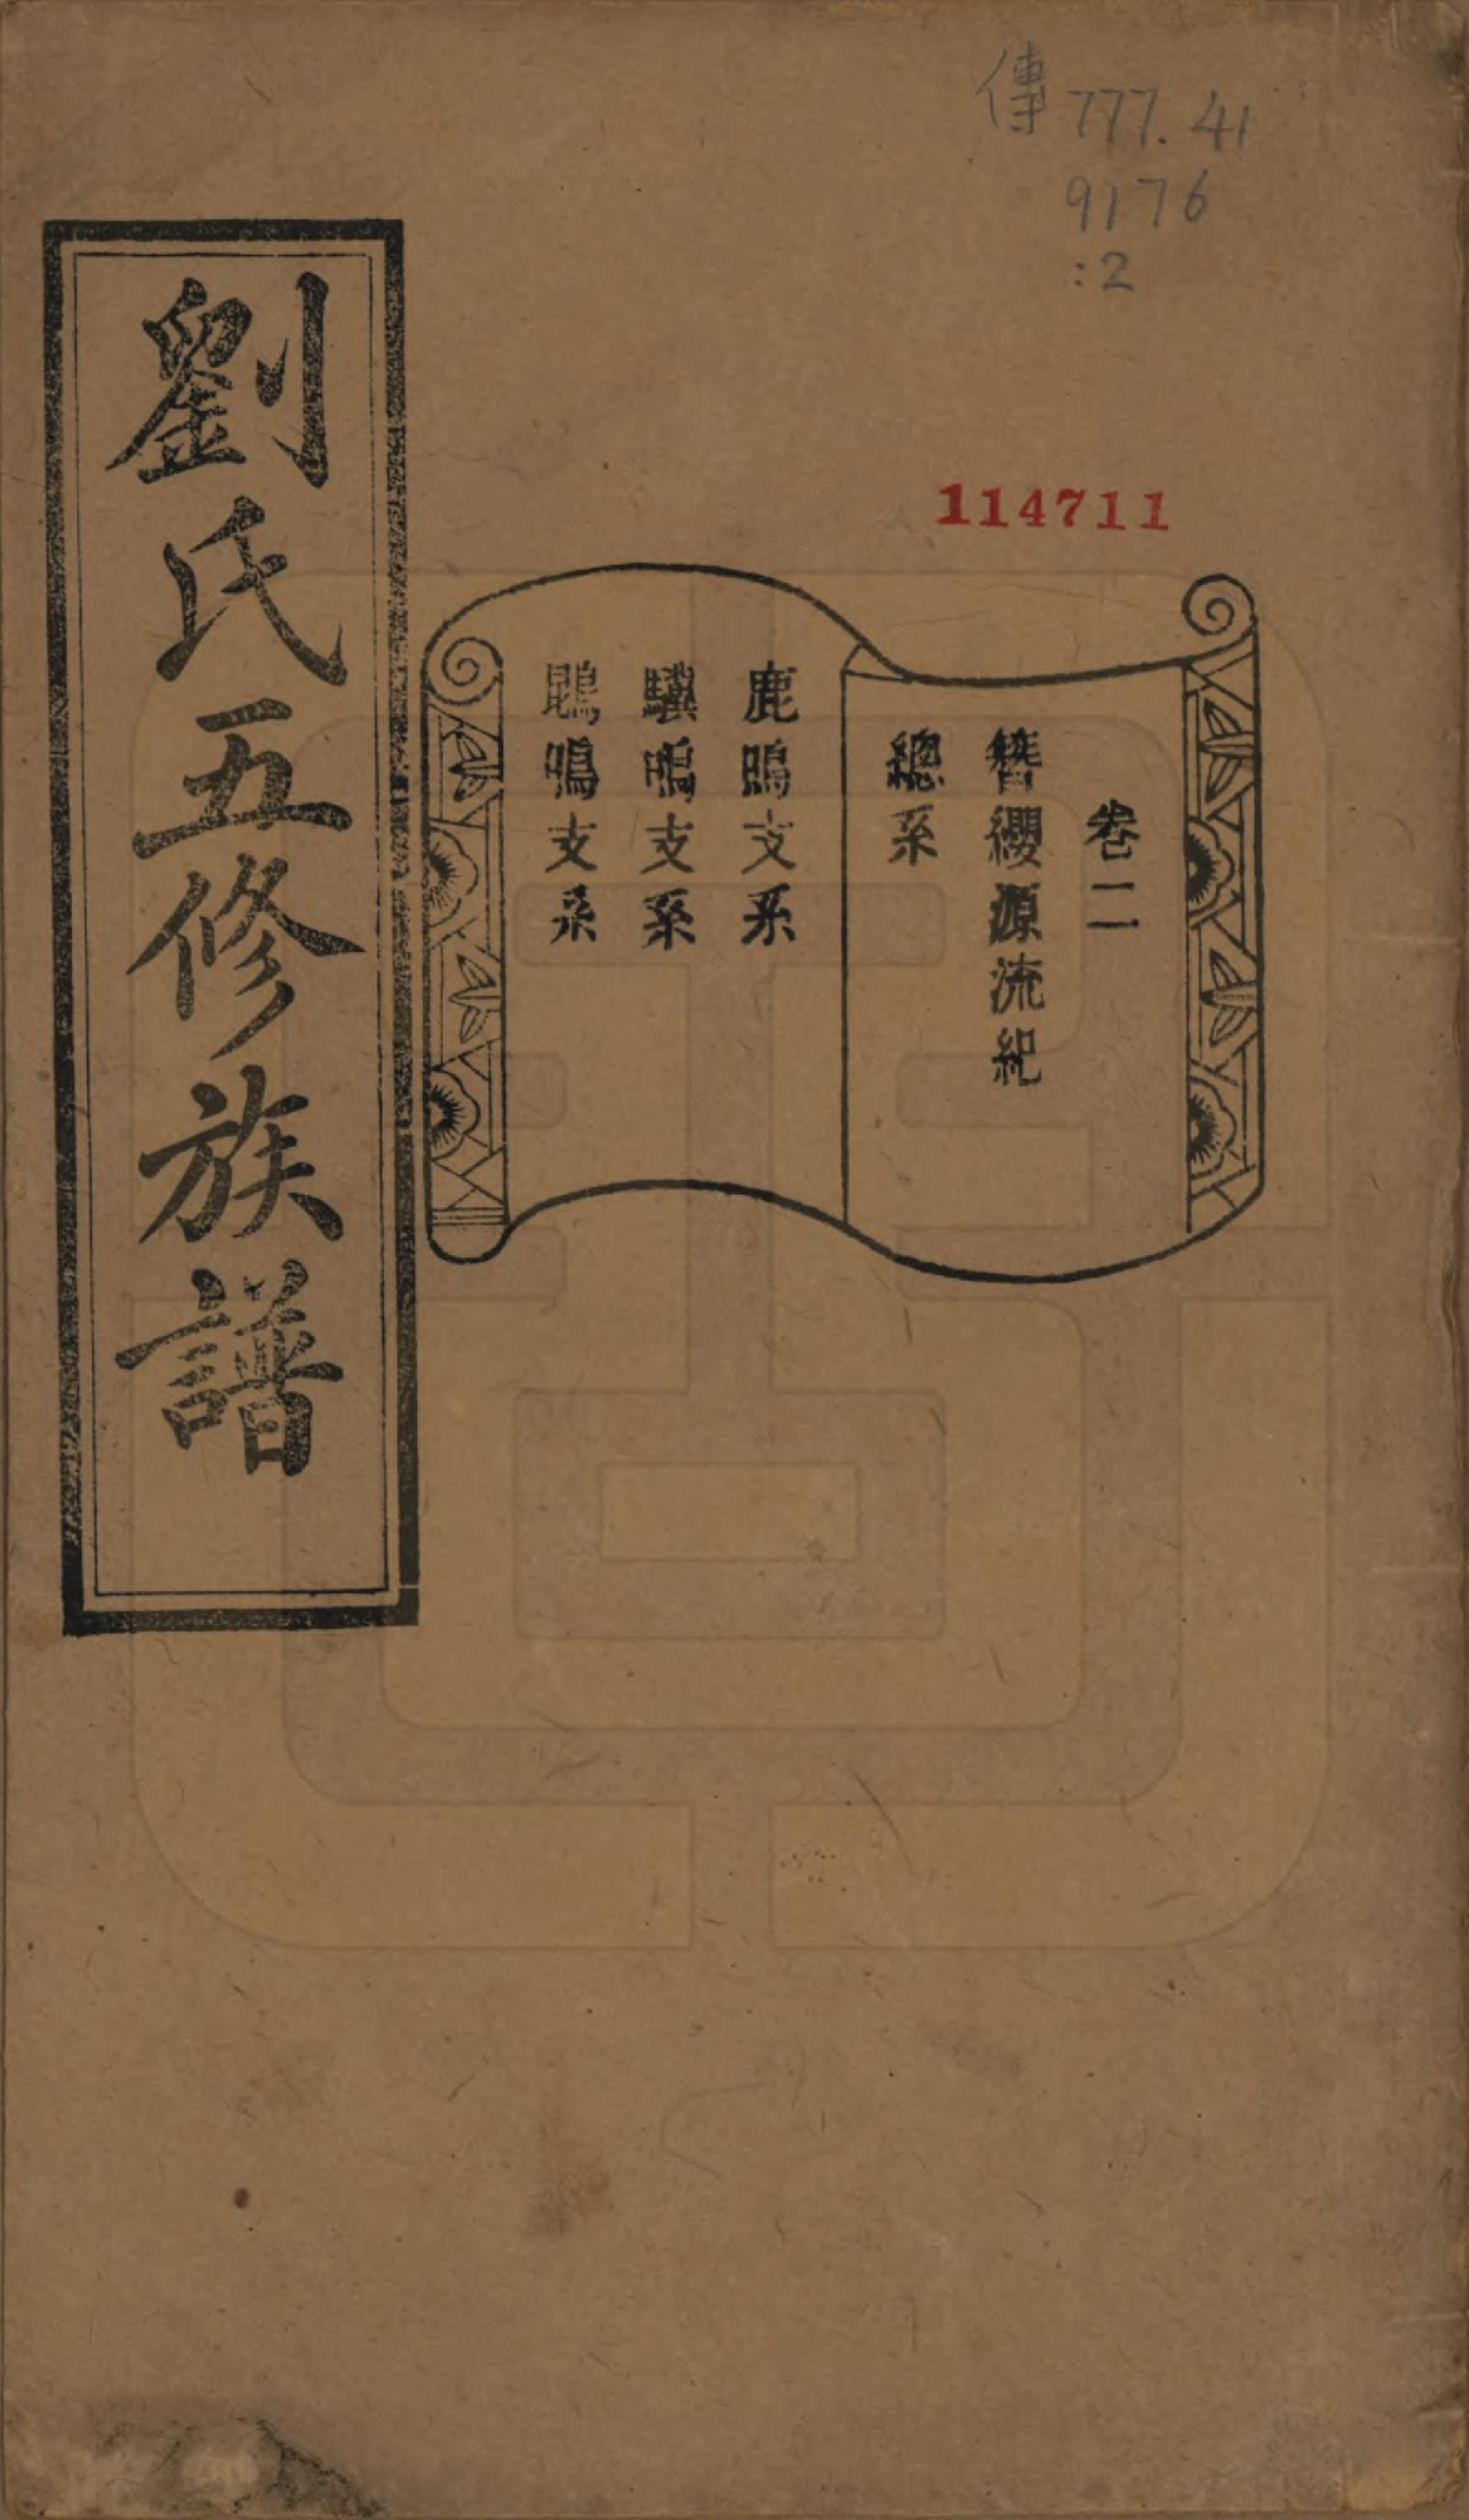 傳 777.41
9176
:2
114711
卷二
簪纓源流紀
總系
鹿鳴支系
驥鳴支系
鵾鳴支系
劉氏五修族譜